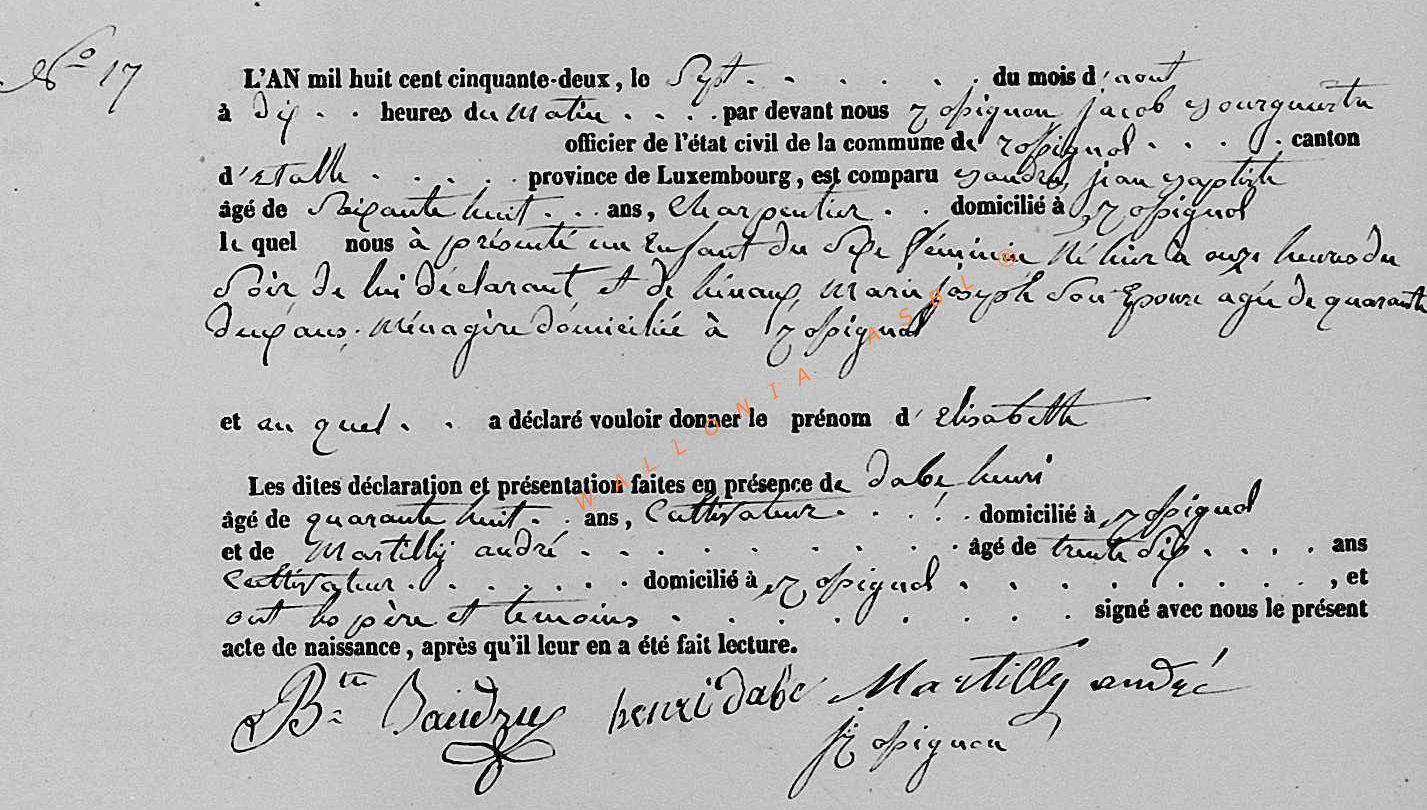 No 17
L'AN mil huit cent cinquante-deux, le Sept du mois d'aout
à dix heures du Matin par devant nous Rossignon jacob Bourguemestre
officier de l'état civil de la commune de Rossignol canton
d'Etalle province de Luxembourg, est comparu Baudru, jean Baptiste
âgé de Soixante huit ans, Charpentier domicilié à Rossignol
le quel nous à présenté un Enfant du Sexe féminin Né hier à onze heures du
Soir, de lui déclarant et de hinaux, Marie joseph Son Epouse agée de quarante
deux ans, Ménagère domiciliée à Rossignol
et au quel a déclaré vouloir donner le prénom d'Elisabeth
Les dites déclaration et présentation faites en présence de dabe henri
âgé de quarante huit ans, Cultivateur domicilié à Rossignol
et de Martilly andré âgé de trente dix ans
Cultivateur domicilié à Rossignol, et
ont les père et temoins signé avec nous le présent
acte de naissance, après qu'il leur en a été fait lecture.
Bte Baudru henri dabe Martilly andré
Rossignon
WALLONIA ASBL ©